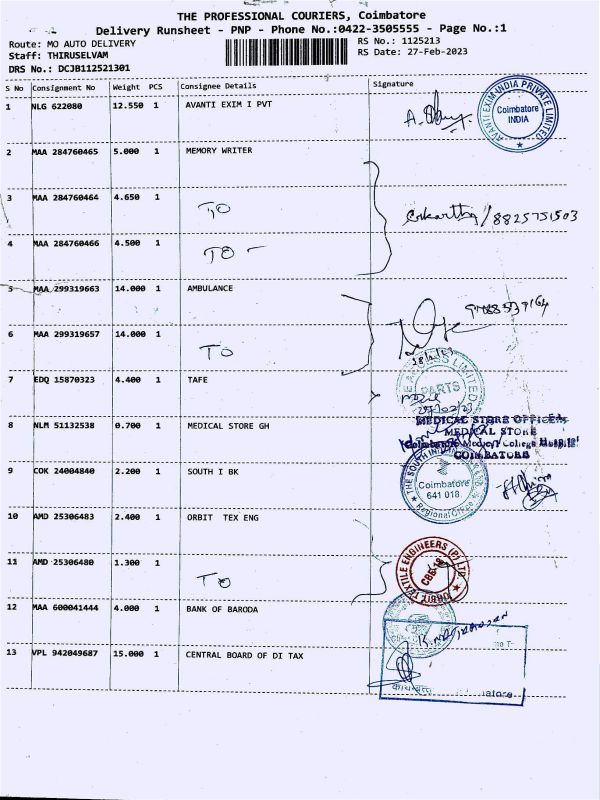 THE PROFESSIONAL COURIERS, Coimbatore
Delivery Runsheet - PNP - Phone No.:0422-3505555 - Page No.:1
Route: MO AUTO DELIVERY
RS No.: 1125213
Staff: THIRUSELVAM
RS Date: 27-Feb-2023
DRS No.: DCJB112521301
S No Consignment No Weight PCS Consignee Details Signature
1 NLG 622080 12.550 1 AVANTI EXIM I PVT
AVANTI EXIM INDIA PRIVATE LIMITED
Coimbatore
INDIA
2 MAA 284760465 5.000 1 MEMORY WRITER
3 MAA 284760464 4.650 1 TO
/8825751503
4 MAA 284760466 4.500 1 TO
5 MAA 299319663 14.000 1 AMBULANCE
6 MAA 299319657 14.000 1 TO
7 EDQ 15870323 4.400 1 TAFE
LIMITED
PARTS
27/02/23
8 NLM 51132538 0.700 1 MEDICAL STORE GH
MEDICAL STORE OFFICER
MEDICAL STORE
Coimbatore Medical College Hospital
COIMBATORE
9 COK 24004840 2.200 1 SOUTH I BK
THE SOUTH INDIAN
Coimbatore
641 018
Regional Office
10 AMD 25306483 2.400 1 ORBIT TEX ENG
11 AMD 25306480 1.300 1 TO
ORBIT TEXTILE ENGINEERS (P) LTD
CBE-18
12 MAA 600041444 4.000 1 BANK OF BARODA
13 VPL 942049687 15.000 1 CENTRAL BOARD OF DI TAX